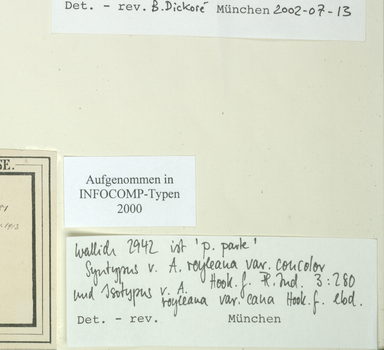 Det. - rev. B. Dickoré München 2002-07-13
SE.
Aufgenommen in
INFOCOMP-Typen
2000
Wallich 2942 ist 'p. parte'
Syntypus v. A. royleana var. concolor
Hook. f. Fl. Ind. 3:280
und Isotypus v. A.
royleana var. cana Hook. f. ebd.
Det. - rev. München